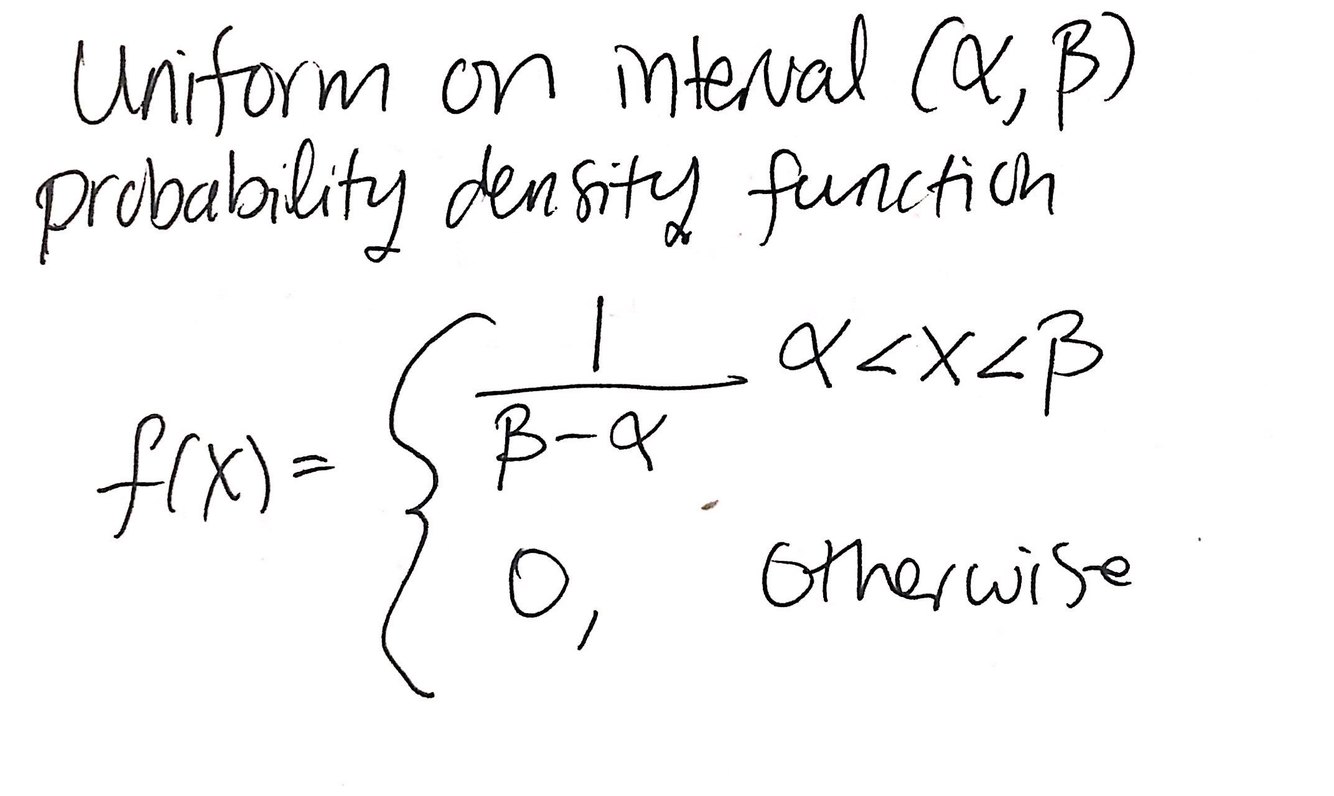 Uniform on interval (α, β)
probability density function
f(x) = { 1/(β-α) α<x<β
0, otherwise